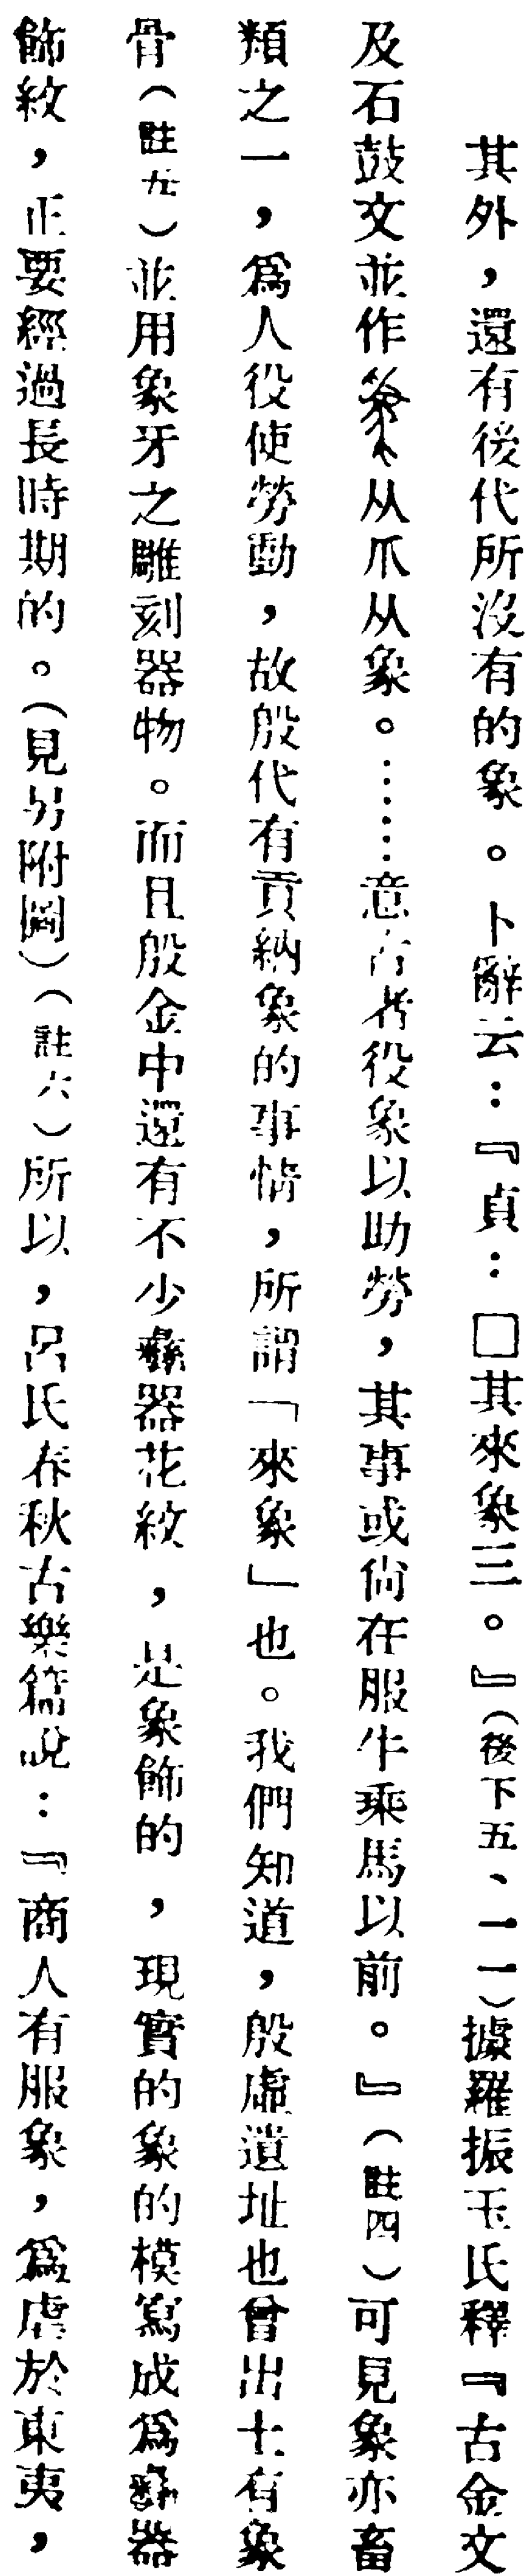 其外，還有後代所沒有的象。卜辭云：『貞：□其來象三。』（後下五、一一）據羅振玉氏釋『古金文
及石鼓文並作从爪从象。……意古者役象以助勞，其事或尙在服牛乘馬以前。』（註四）可見象亦畜
類之一，爲人役使勞動，故殷代有貢納象的事情，所謂「來象」也。我們知道，殷虛遺址也曾出土有象
骨（註五）並用象牙之雕刻器物。而且殷金中還有不少彝器花紋，是象飾的，現實的象的模寫成爲彝器
飾紋，正要經過長時期的。（見另附圖）（註六）所以，呂氏春秋古樂篇說：『商人有服象，爲虐於東夷，